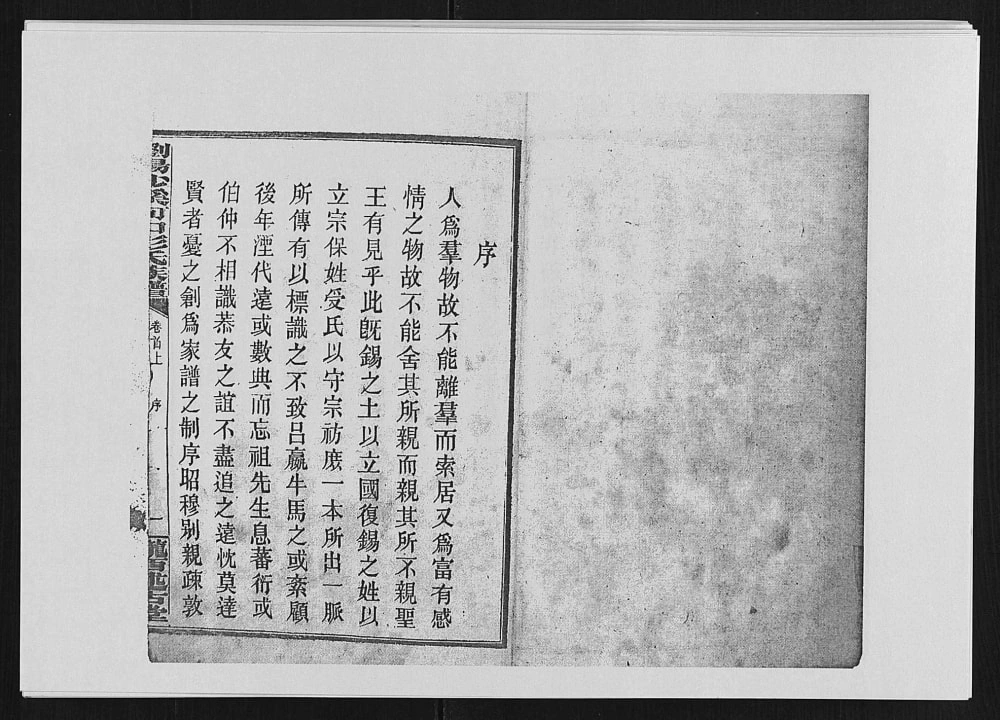 序
人爲羣物故不能離羣而索居又爲富有感
情之物故不能舍其所親而親其所不親聖
王有見乎此旣錫之土以立國復錫之姓以
立宗保姓受氏以守宗祊庻一本所出一脈
所傳有以標識之不致呂嬴牛馬之或紊顧
後年湮代遠或數典而忘祖先生息蕃衍或
伯仲不相識恭友之誼不盡追之遠忱莫達
賢者憂之創爲家譜之制序昭穆别親疎敦
瀏陽 彭氏族譜
卷首上
序
一